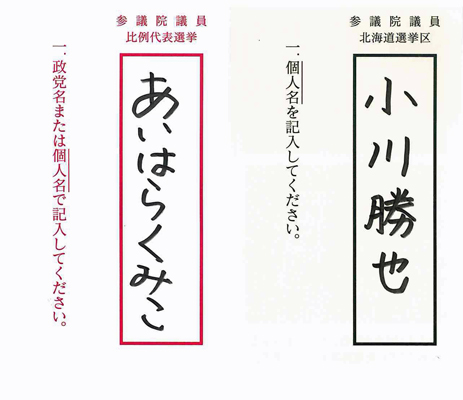 参議院議員
北海道選挙区
小川勝也
一．個人名を記入してください。
参議院議員
比例代表選挙
あいはらくみこ
一．政党名または個人名で記入してください。